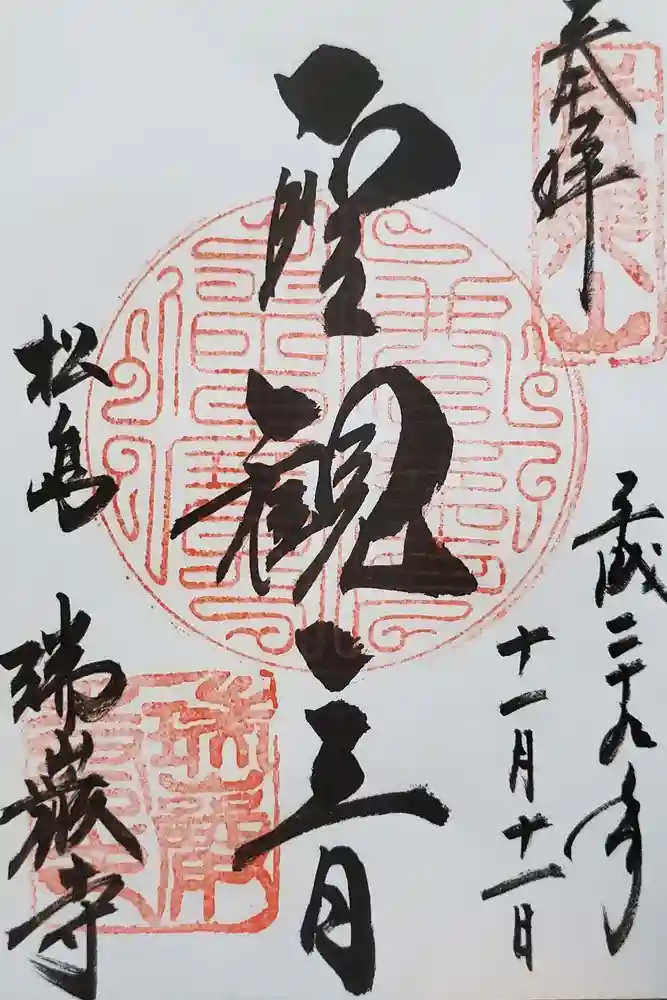 奉拝
平成二十九年
十一月十一日
聖観音
松島 瑞巌寺